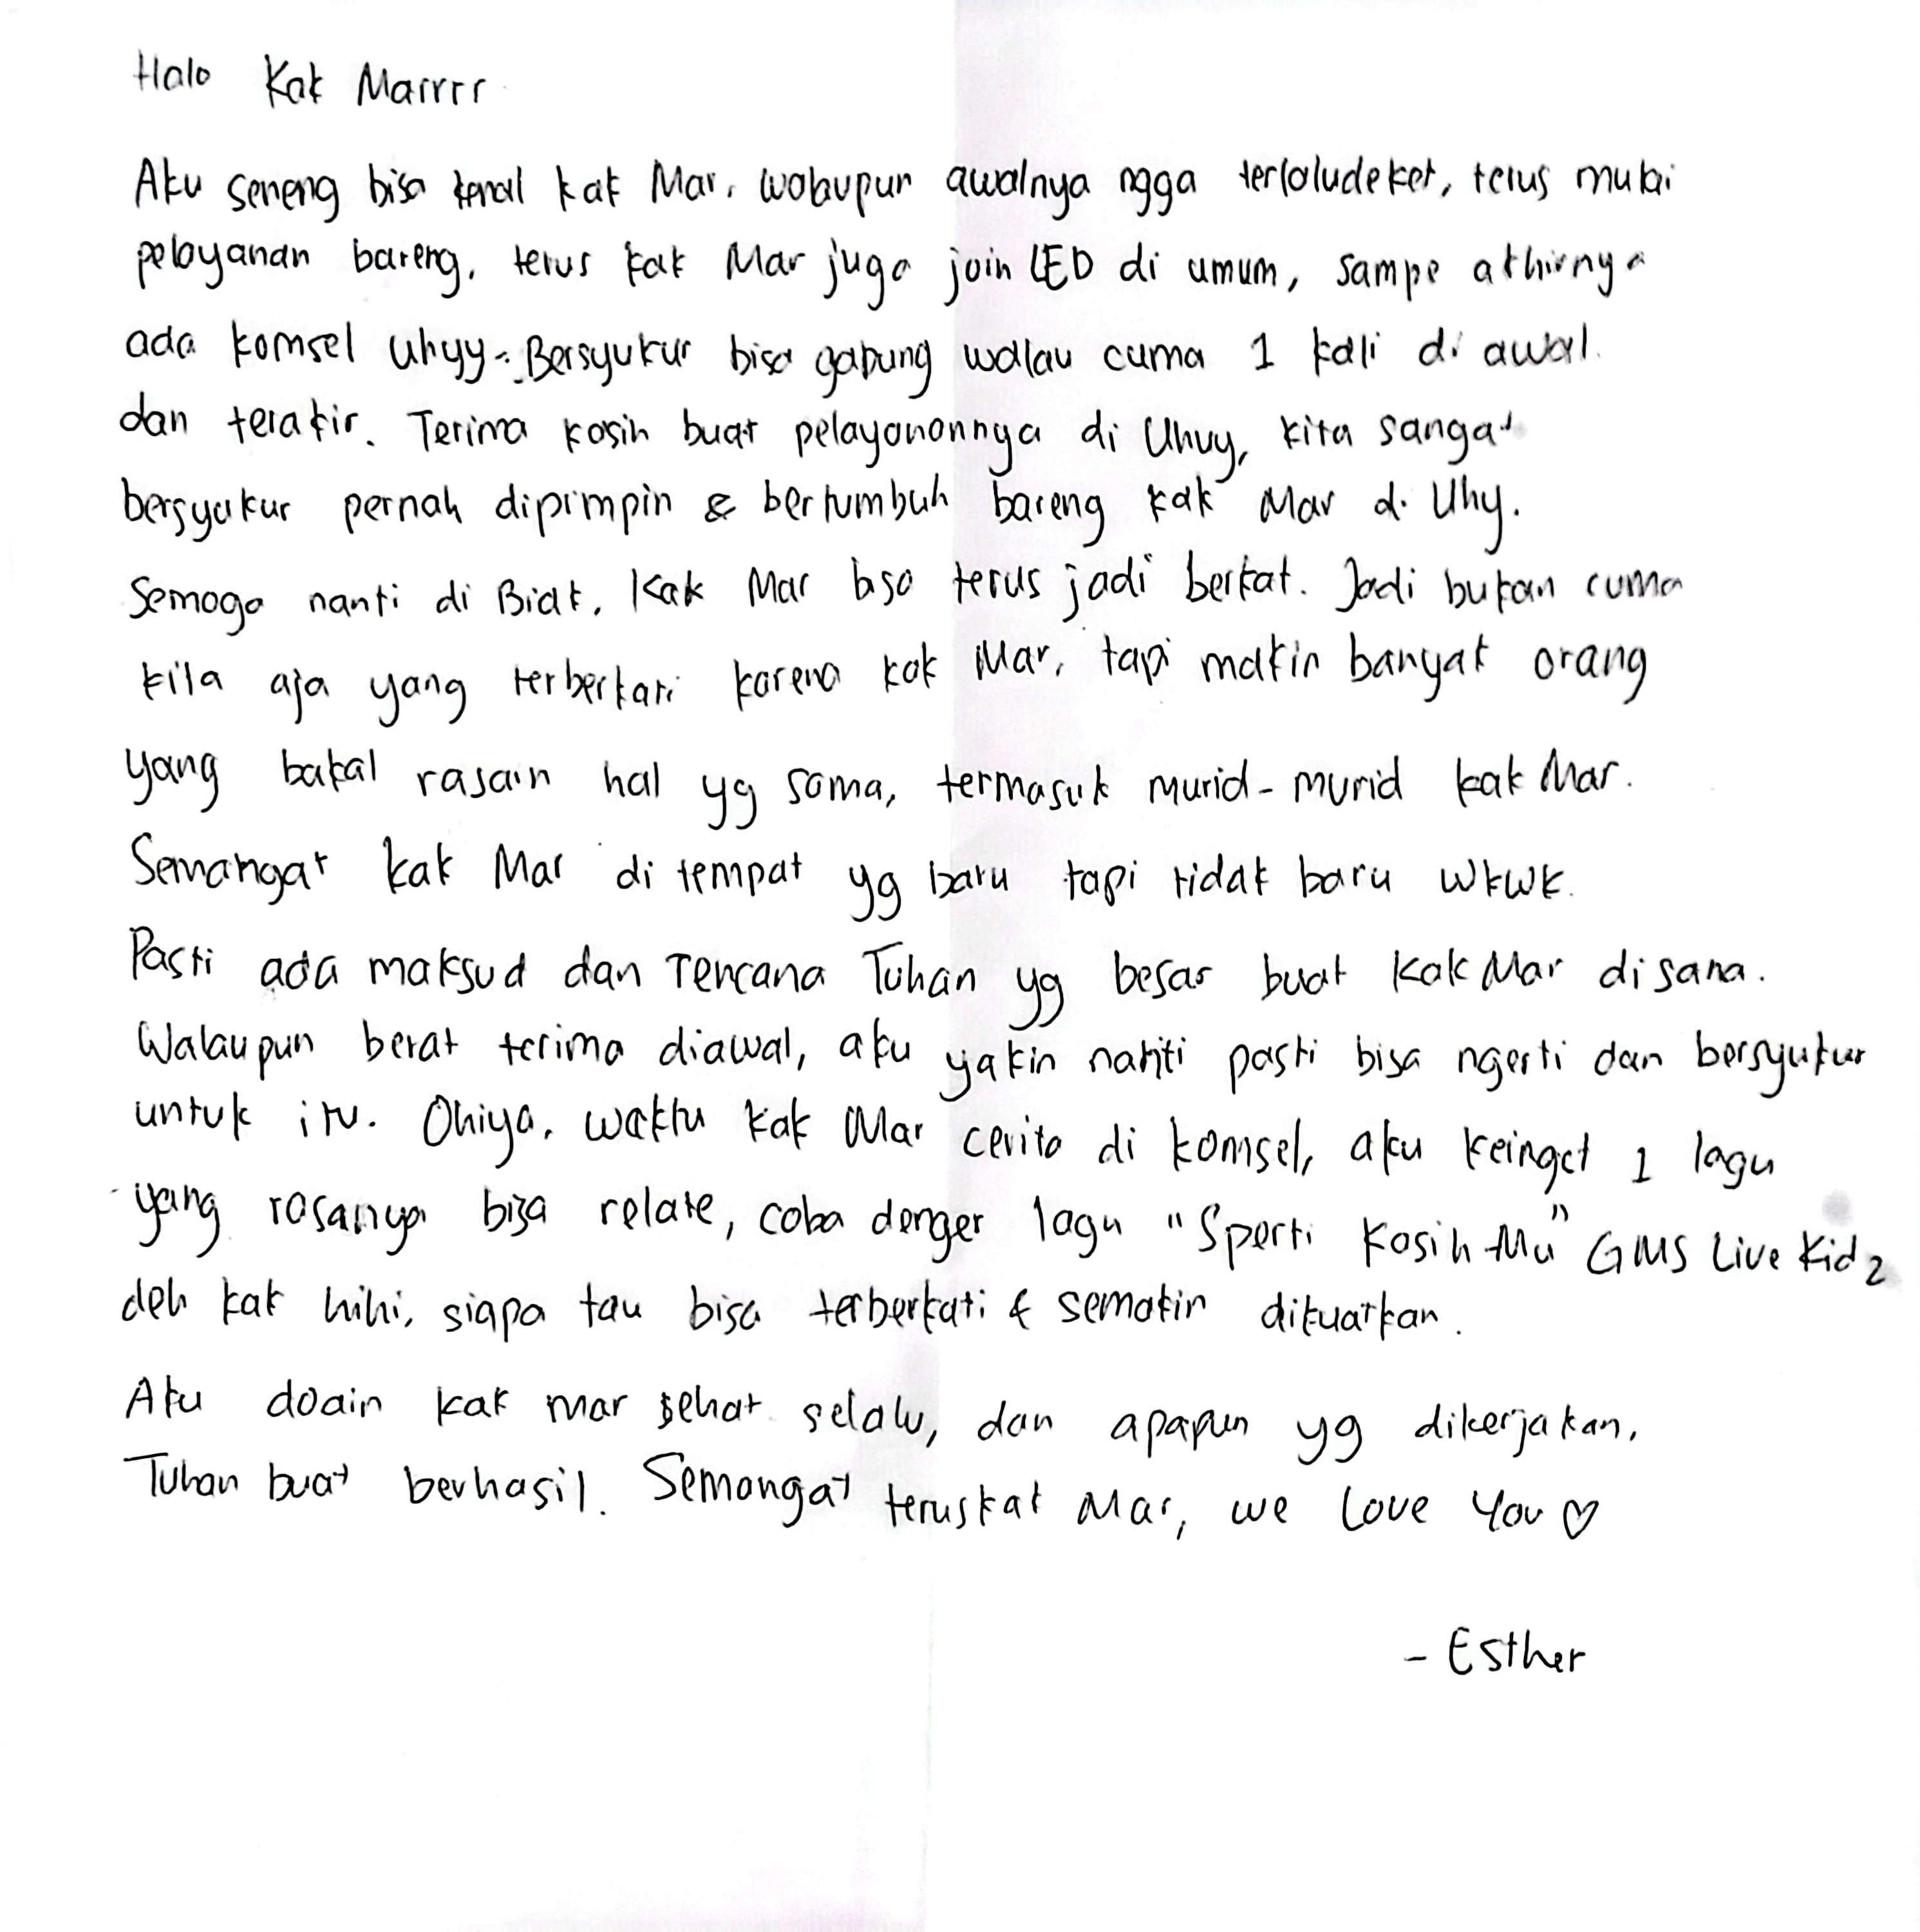 Halo Kak Marrrr
Aku seneng bisa kenal kak Mar, walaupun awalnya ngga terlalu deket, terus mulai
pelayanan bareng, terus kak Mar juga join LED di umum, sampe akhirnya
ada komsel Uhyy. Bersyukur bisa gabung walau cuma 1 kali di awal
dan terakir. Terima kasih buat pelayanannya di Uhuy, kita sangat
bersyukur pernah dipimpin & bertumbuh bareng kak Mar di Uhy.
Semoga nanti di Biak, Kak Mar bisa terus jadi berkat. Jadi bukan cuma
kita aja yang terberkati karena kak Mar, tapi makin banyak orang
yang bakal rasain hal yg sama, termasuk murid-murid kak Mar.
Semangat kak Mar di tempat yg baru tapi tidak baru wkwk.
Pasti ada maksud dan rencana Tuhan yg besar buat kak Mar disana.
Walaupun berat terima diawal, aku yakin nanti pasti bisa ngerti dan bersyukur
untuk itu. Ohiya, waktu kak Mar cerita di komsel, aku keinget 1 lagu
yang rasanya bisa relate, coba denger lagu "Sperti Kasih-Mu" GMS Live Kidz
deh kak hihi, siapa tau bisa terberkati & semakin dikuatkan.
Aku doain kak mar sehat selalu, dan apapun yg dikerjakan,
Tuhan buat berhasil. Semangat terus kak Mar, we Love You ♡
- Esther